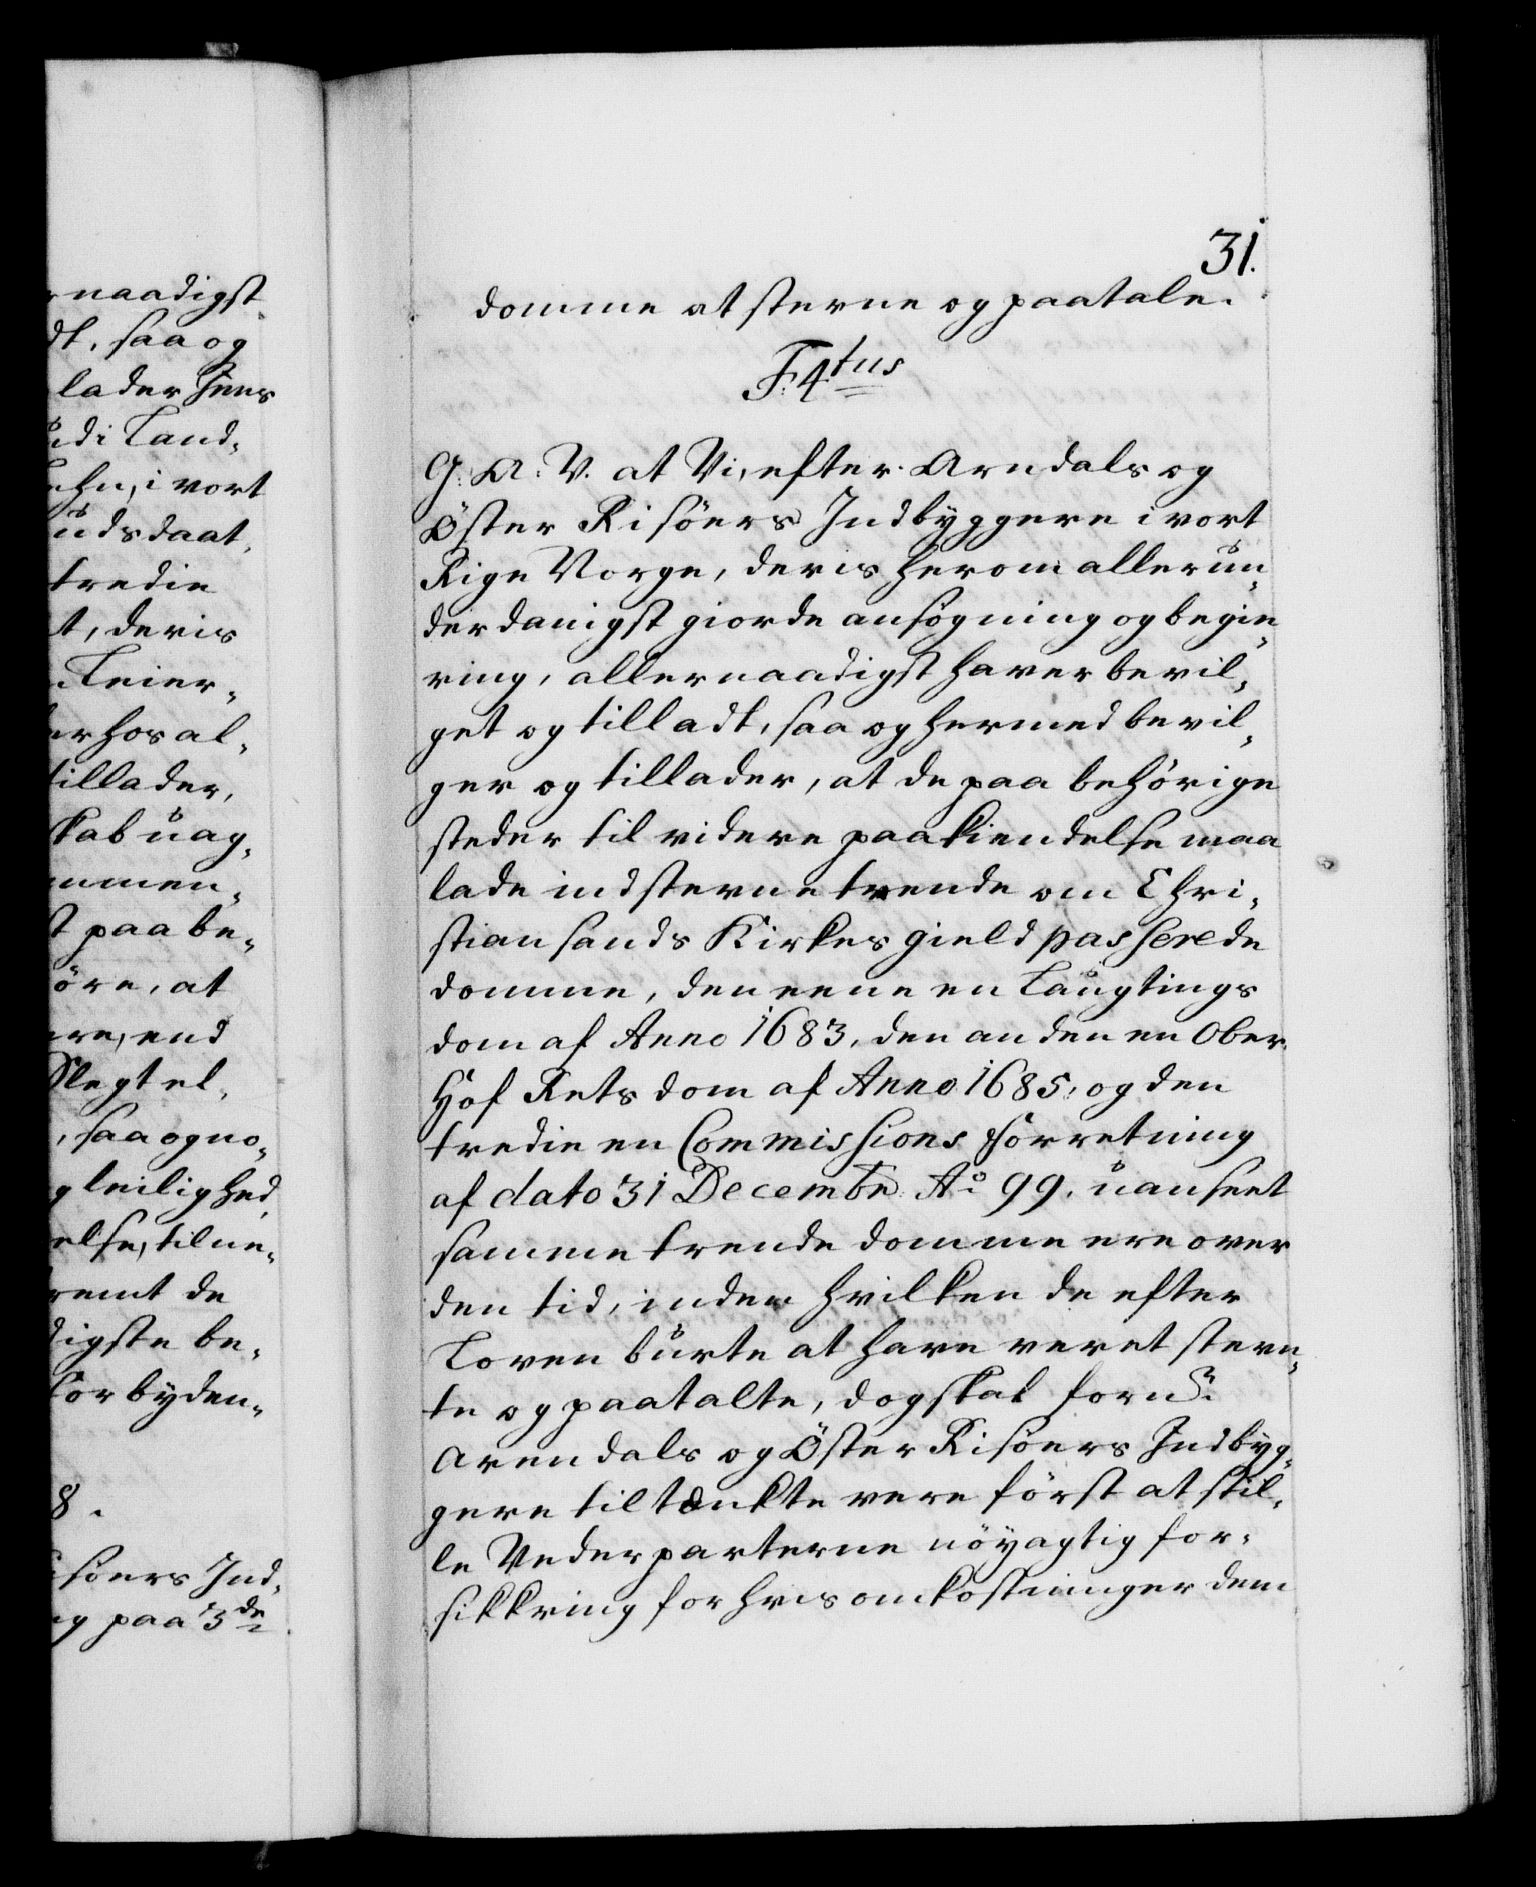 naadigst
dt, saa og
lader Jens
ůdi Land,
Lehn, i vort
ůds daat,
tredie
t, deris
Leier,
er hos al,
tillader,
skab ůag,
mmen,
t paa be,
öre, at
re, end
Slegt el,
, saa og no,
g leilighed
else, til ne,
remt de
digste be,
Forbyden,
8.
isöers Ind,
ng paa 3de
31.
domme at sterne og paatale.
F: 4tus
G: A: V. at Vi, efter Arndals og
Öster Risöers Indbyggere i vort
Rige Norge, deris herom allerůn,
derdanigst giorde ansögning og begie,
ring, allernaadigst haver bevil,
get og tilladt, saa og hermed bevil,
ger og tillader, at de paa behörige
steder til videre paakiendelse maa
lade indsterne trende om Chri,
stiansands Kirkes gield passerede
domme, den eene en Laůgtings
dom af Anno 1683, den anden en Ober
Hof Rets dom af Anno 1685, og den
tredie en Commissions Forretning
af dato 31 Decembr. Ao 99. ůanseet
samme trende domme ere over
den tid, inden hvilken de efter
Loven bůrte at have veret stevn,
te og paatalte, dog skal forne
Arendals og Öster Risöers Indbyg,
gere tiltænkte vere först at stil,
le Vederparterne nöyagtig for,
sikkring for hvis omkostninger dem